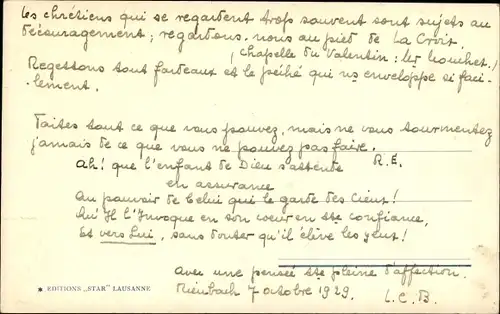 Les chrétiens qui se regardent trop souvent sont sujets au
découragement; regardons-nous au pied de La Croix.
(Chapelle du Valentin: Mr
Rejettons tout fardeaux et le péché qui ns enveloppe si faci-
lement.
Faites tout ce que vous pouvez, mais ne vous tourmentez
jamais de ce que vous ne pouvez pas faire.
Ah! que l'enfant de Dieu s'attende R.E.
en assurance
Au pouvoir de Celui qui le garde des Cieux!
Qu'Il l'Invoque en son coeur en tte confiance,
Et vers Lui, sans douter qu'il élève les yeux!
Avec une pensée tte pleine d'affection.
7 octobre 1929. L.C.B.
* EDITIONS „STAR" LAUSANNE